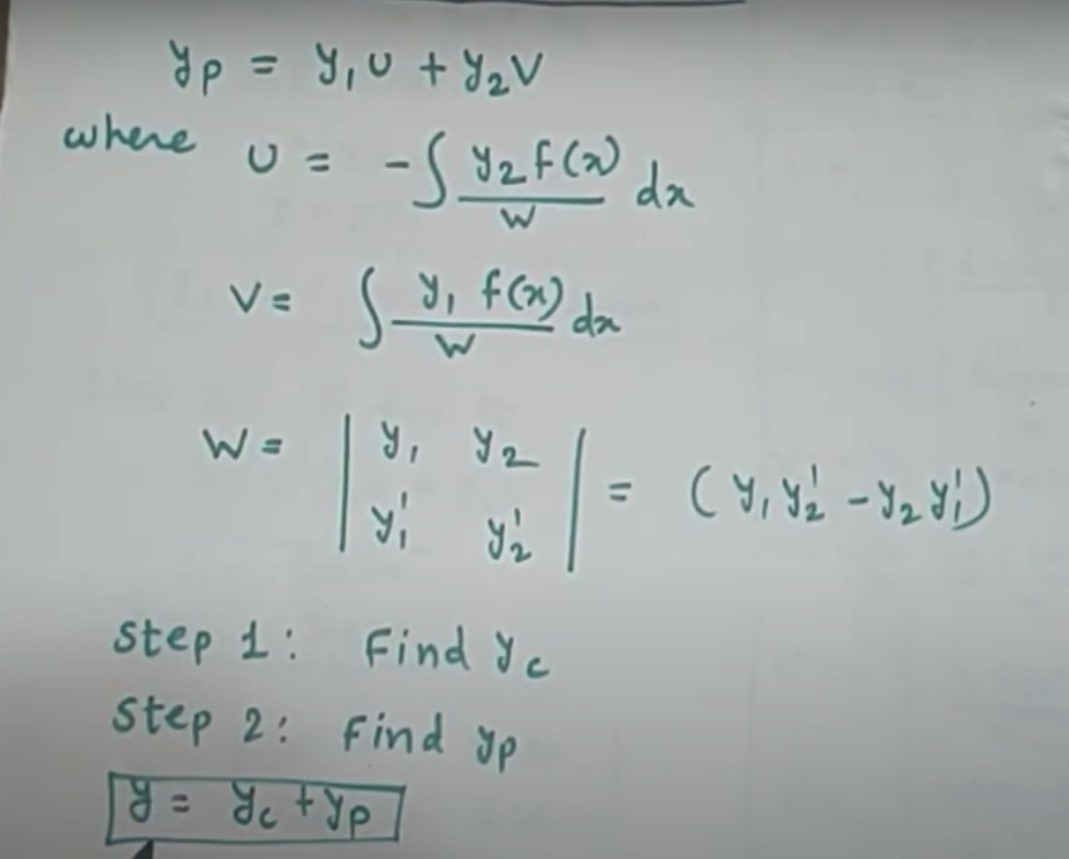 yₚ = y₁u + y₂v
where u = -∫ y₂f(x)/w dx
v = ∫ y₁ f(x)/w dx
w = | y₁ y₂ | = (y₁y₂' - y₂y₁')
| y₁' y₂' |
Step 1: Find y_c
Step 2: Find yₚ
y = y_c + yₚ